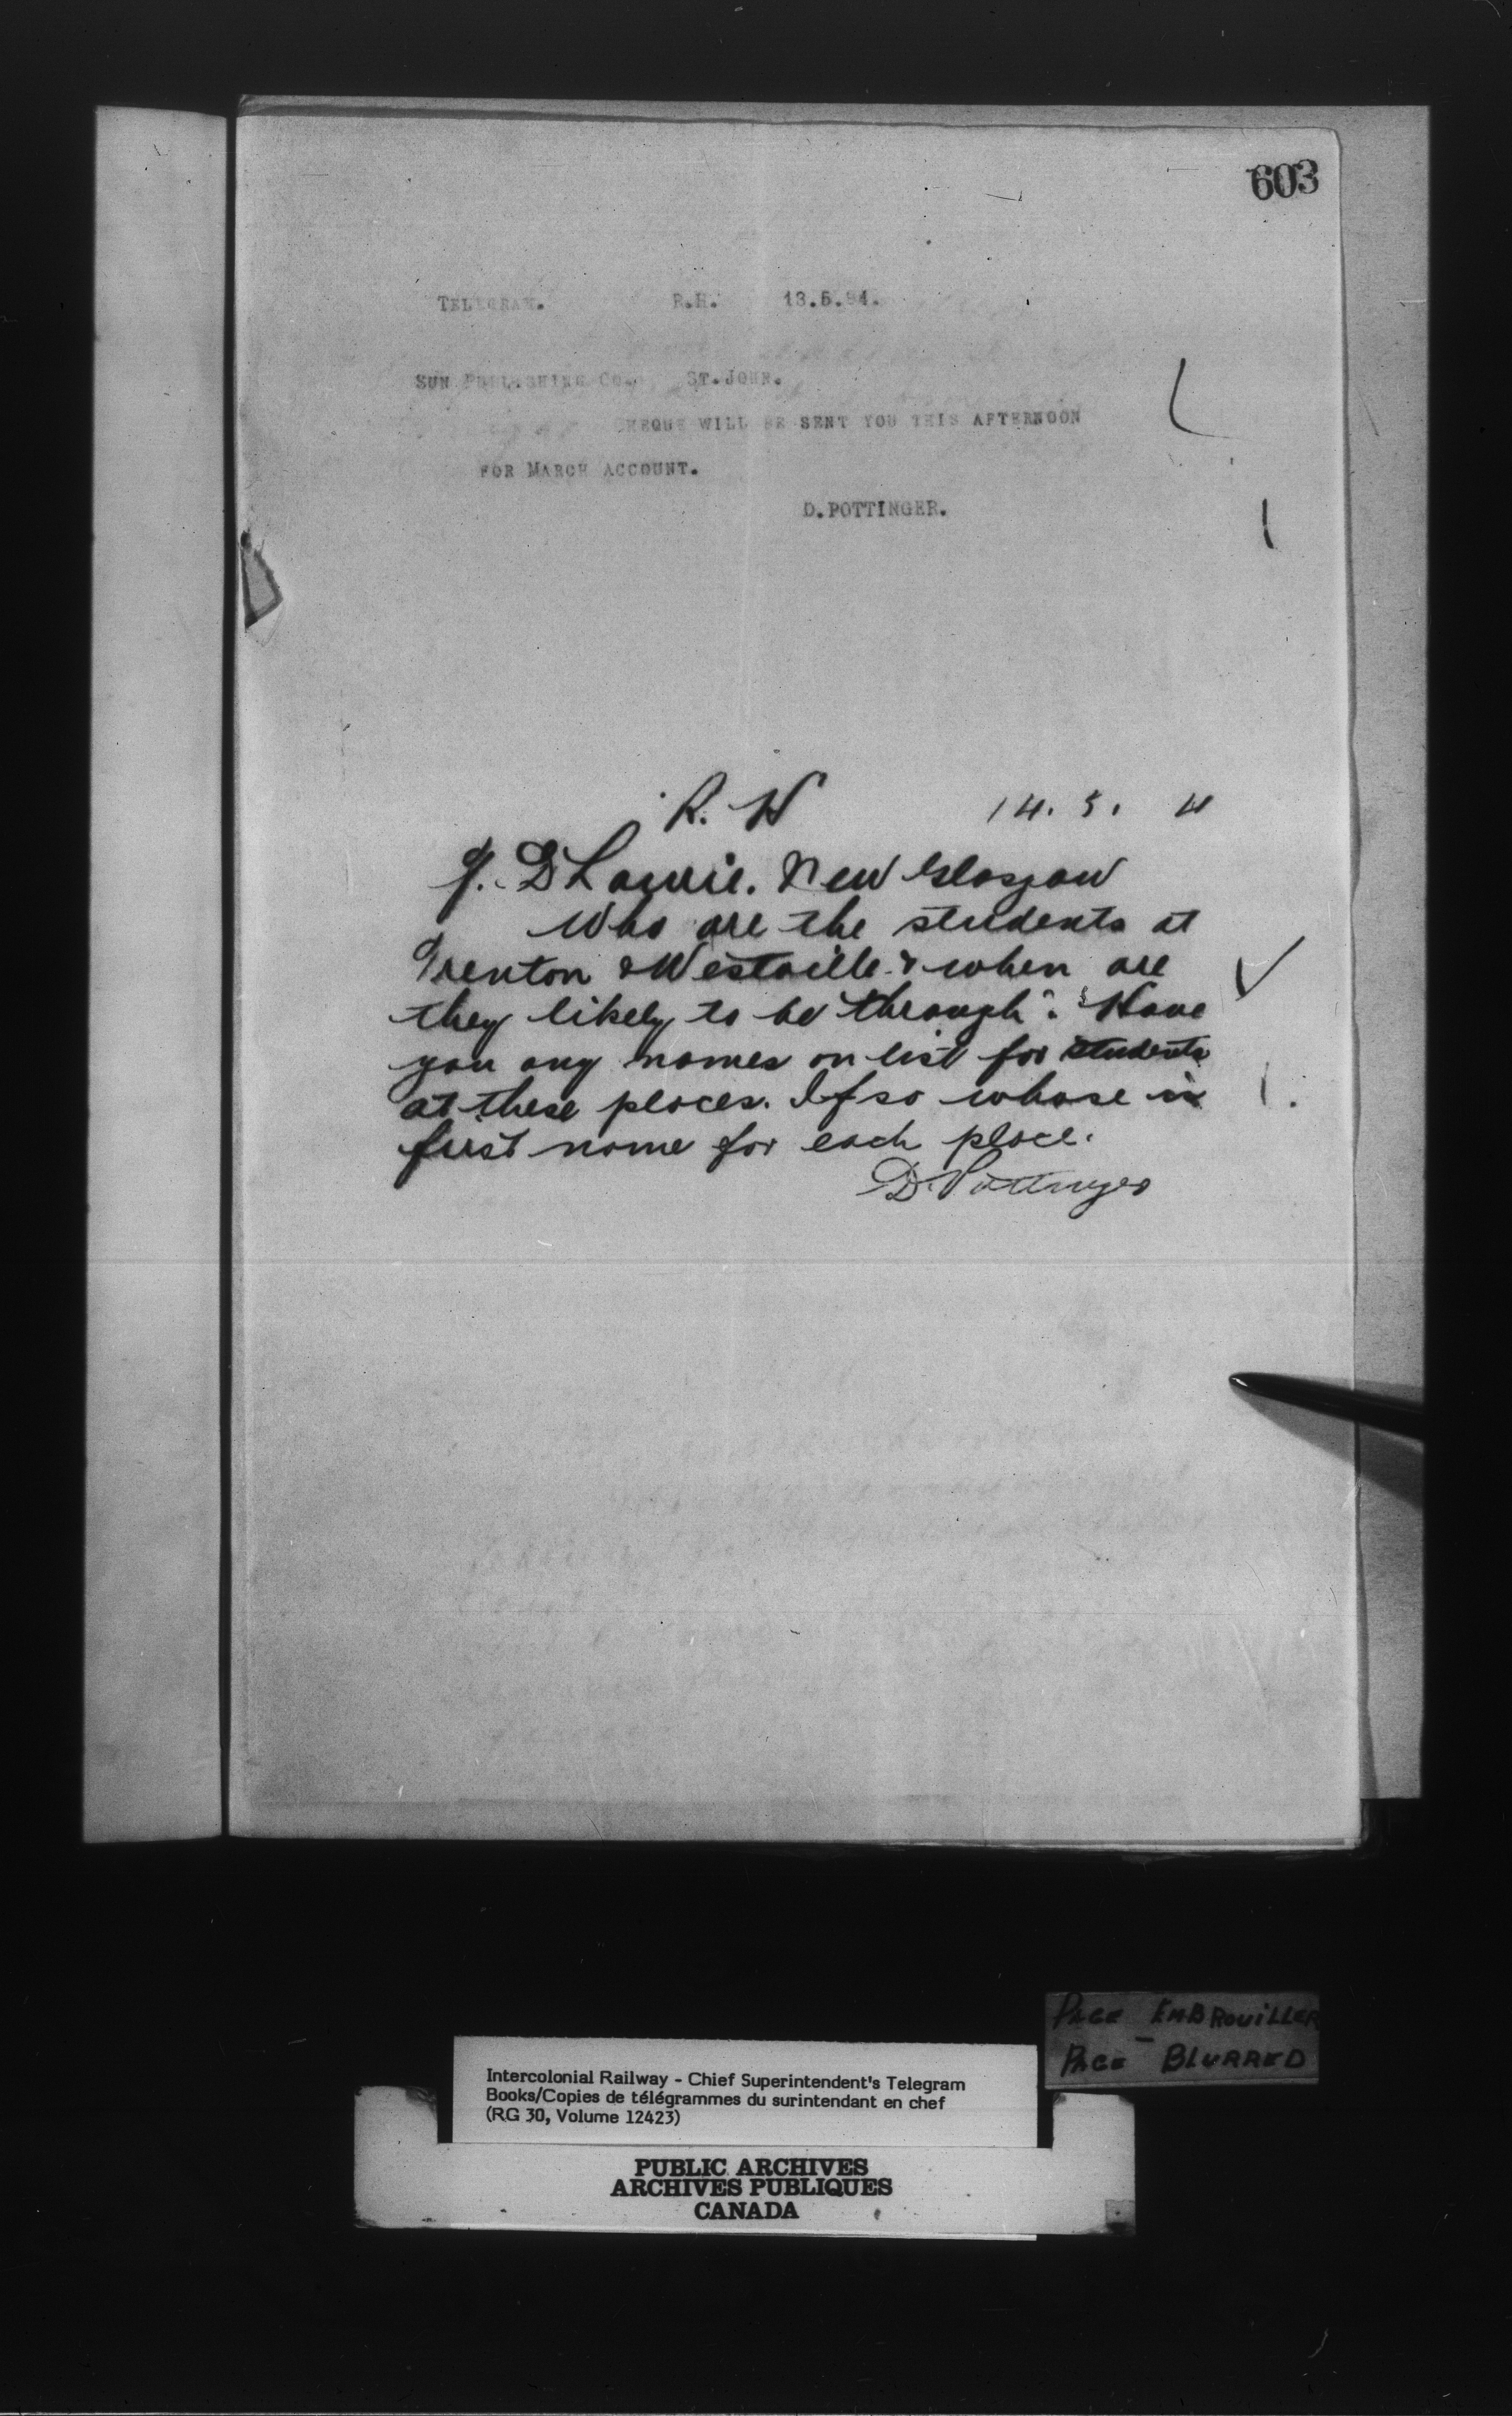 603
TELEGRAM. R.H. 13.5.94.
SUN PUBLISHING CO. ST.JOHN.
CHEQUE WILL BE SENT YOU THIS AFTERNOON
FOR MARCH ACCOUNT.
D.POTTINGER.
R. H 14. 5. 4
J. D Lawrie. New Glasgow
Who are the students at
Trenton & Westville & when are
they likely to be "through". Have
you any names on list for students
at these places. If so whose is
first name for each place.
D. Pottinger
PAGE EMBROUILLER
PAGE - BLURRED
Intercolonial Railway - Chief Superintendent's Telegram
Books/Copies de télégrammes du surintendant en chef
(RG 30, Volume 12423)
PUBLIC ARCHIVES
ARCHIVES PUBLIQUES
CANADA